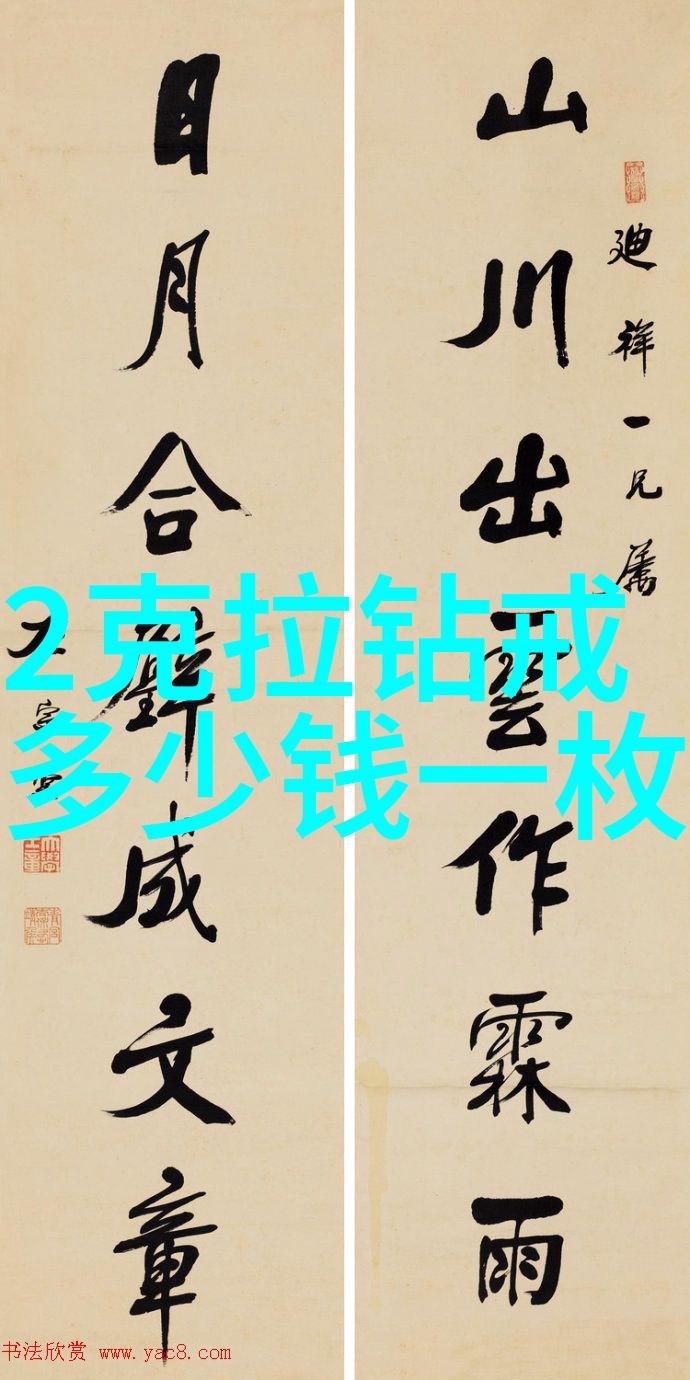 山川出雲作霖雨
廸祥一兄属
日月合璧成文章
2克拉钻戒
多少钱一枚
书法欣赏 www.yac8.com